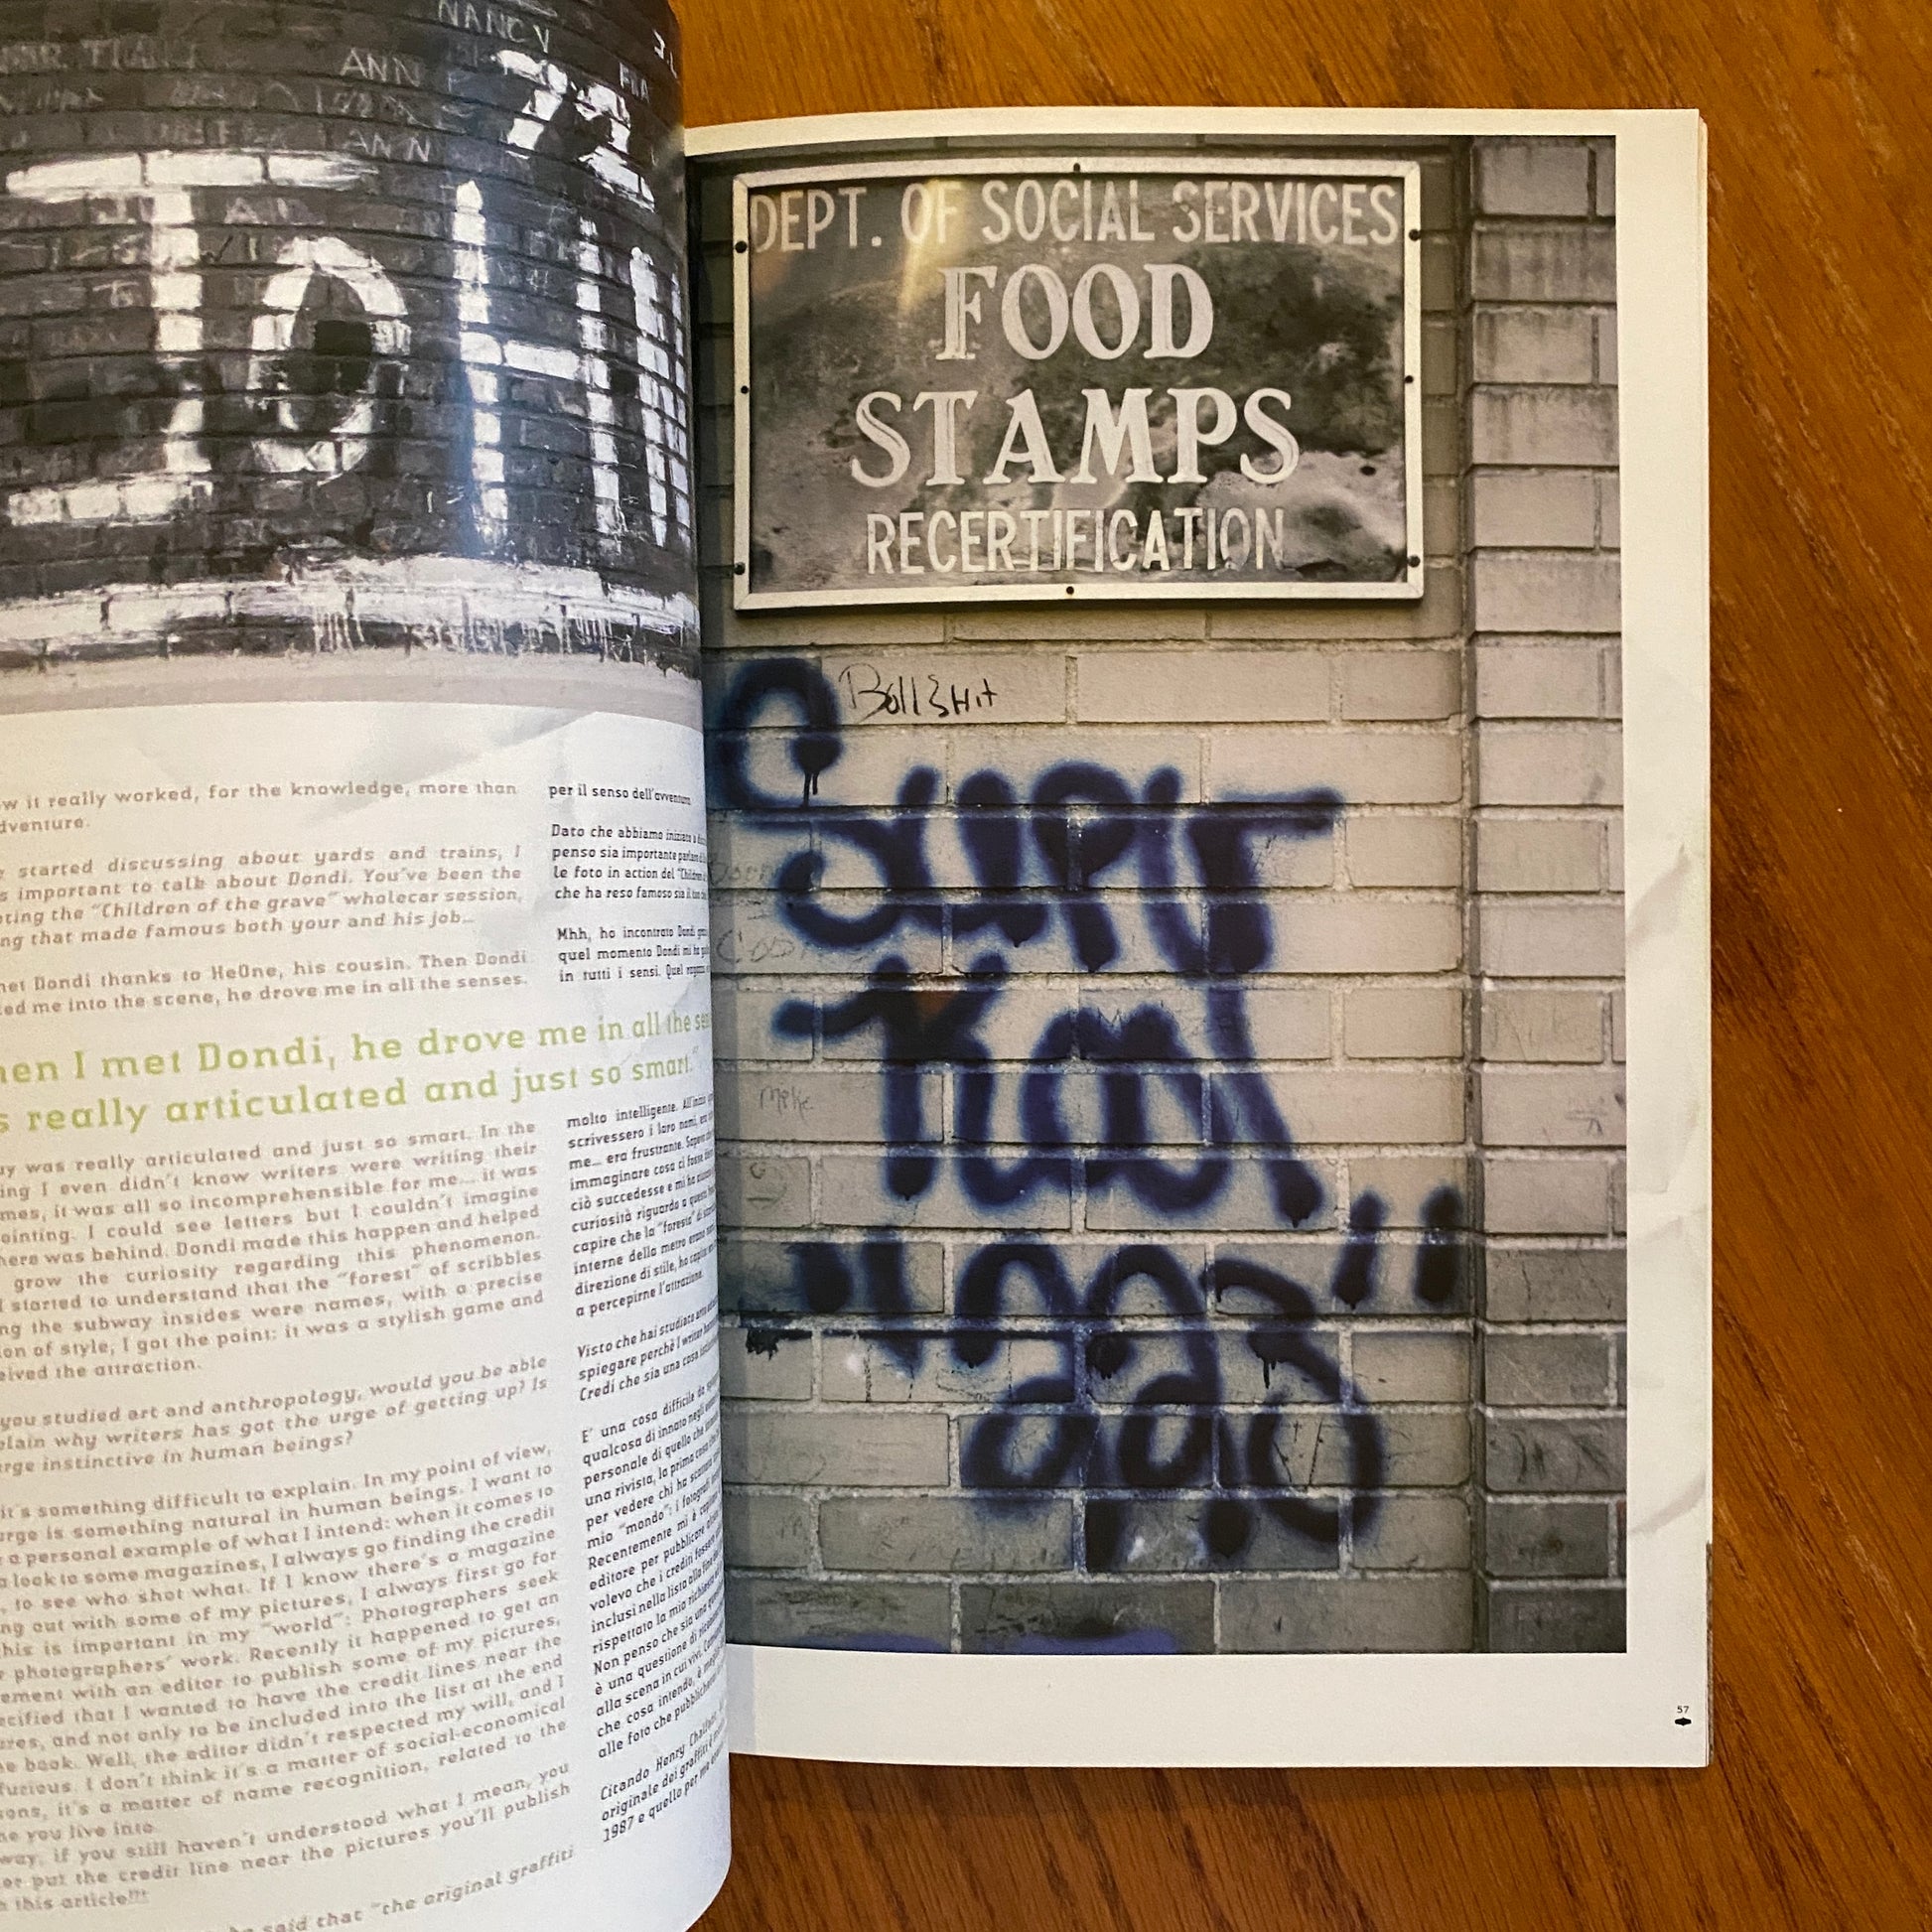 NANCY
ANN
ANN
w it really worked, for the knowledge, more than
dventure.
started discussing about yards and trains, I
s important to talk about Dondi. You've been the
ting the "Children of the grave" wholecar session,
ng that made famous both your and his job...
met Dondi thanks to HeOne, his cousin. Then Dondi
ed me into the scene, he drove me in all the senses.
hen I met Dondi, he drove me in all the
s really articulated and just so smart."
uy was really articulated and just so smart. In the
ing I even didn't know writers were writing their
mes, it was all so incomprehensible for me... it was
ointing. I could see letters but I couldn't imagine
here was behind. Dondi made this happen and helped
grow the curiosity regarding this phenomenon.
I started to understand that the "forest" of scribbles
ng the subway insides were names, with a precise
ion of style, I got the point: it was a stylish game and
eived the attraction.
you studied art and anthropology, would you be able
plain why writers has got the urge of getting up? Is
urge instinctive in human beings?
it's something difficult to explain. In my point of view,
urge is something natural in human beings. I want to
a personal example of what I intend: when it comes to
a look to some magazines, I always go finding the credit
, to see who shot what. If I know there's a magazine
ng out with some of my pictures, I always first go for
his is important in my "world": Photographers seek
r photographers' work. Recently it happened to get an
ement with an editor to publish some of my pictures,
ecified that I wanted to have the credit lines near the
ures, and not only to be included into the list at the end
he book. Well, the editor didn't respected my will, and I
furious. I don't think it's a matter of social-economical
sons, it's a matter of name recognition, related to the
ne you live into.
way, if you still haven't understood what I mean, you
er put the credit line near the pictures you'll publish
n this article!!!
said that "the original graffiti
per il senso dell'avventura.
Dato che abbiamo iniziato a
penso sia importante parlare
le foto in action del "Children
che ha reso famoso sia il tuo
Mhh, ho incontrato Dondi
quel momento Dondi mi ha
in tutti i sensi. Quel ragazzo
molto intelligente. All'inizio
scrivessero i loro nomi, era
me... era frustrante. Sapevo
immaginare cosa ci fosse
ciò succedesse e mi ha
curiosità riguardo a questo
capire che la "foresta" di
interne della metro erano
direzione di stile, ho capito
a percepirne l'attrazione.
Visto che hai studiato arte
spiegare perchè i writer hanno
Credi che sia una cosa
E' una cosa difficile da
qualcosa di innato negli
personale di quello che intendo
una rivista, la prima cosa che
per vedere chi ha scattato
mio "mondo": i fotografi
Recentemente mi è capitato
editore per pubblicare alcune
volevo che i crediti fossero
inclusi nella lista alla fine
rispettato la mia richiesta
Non penso che sia una
è una questione di
alla scena in cui vivi.
che cosa intendo, è meglio
alle foto che pubblicherai
Citando Henry Chalfant
originale dei graffiti è
1987 e quello
DEPT. OF SOCIAL SERVICES
FOOD
STAMPS
RECERTIFICATION
BullShit
SUPER
KOOL
"223"
57